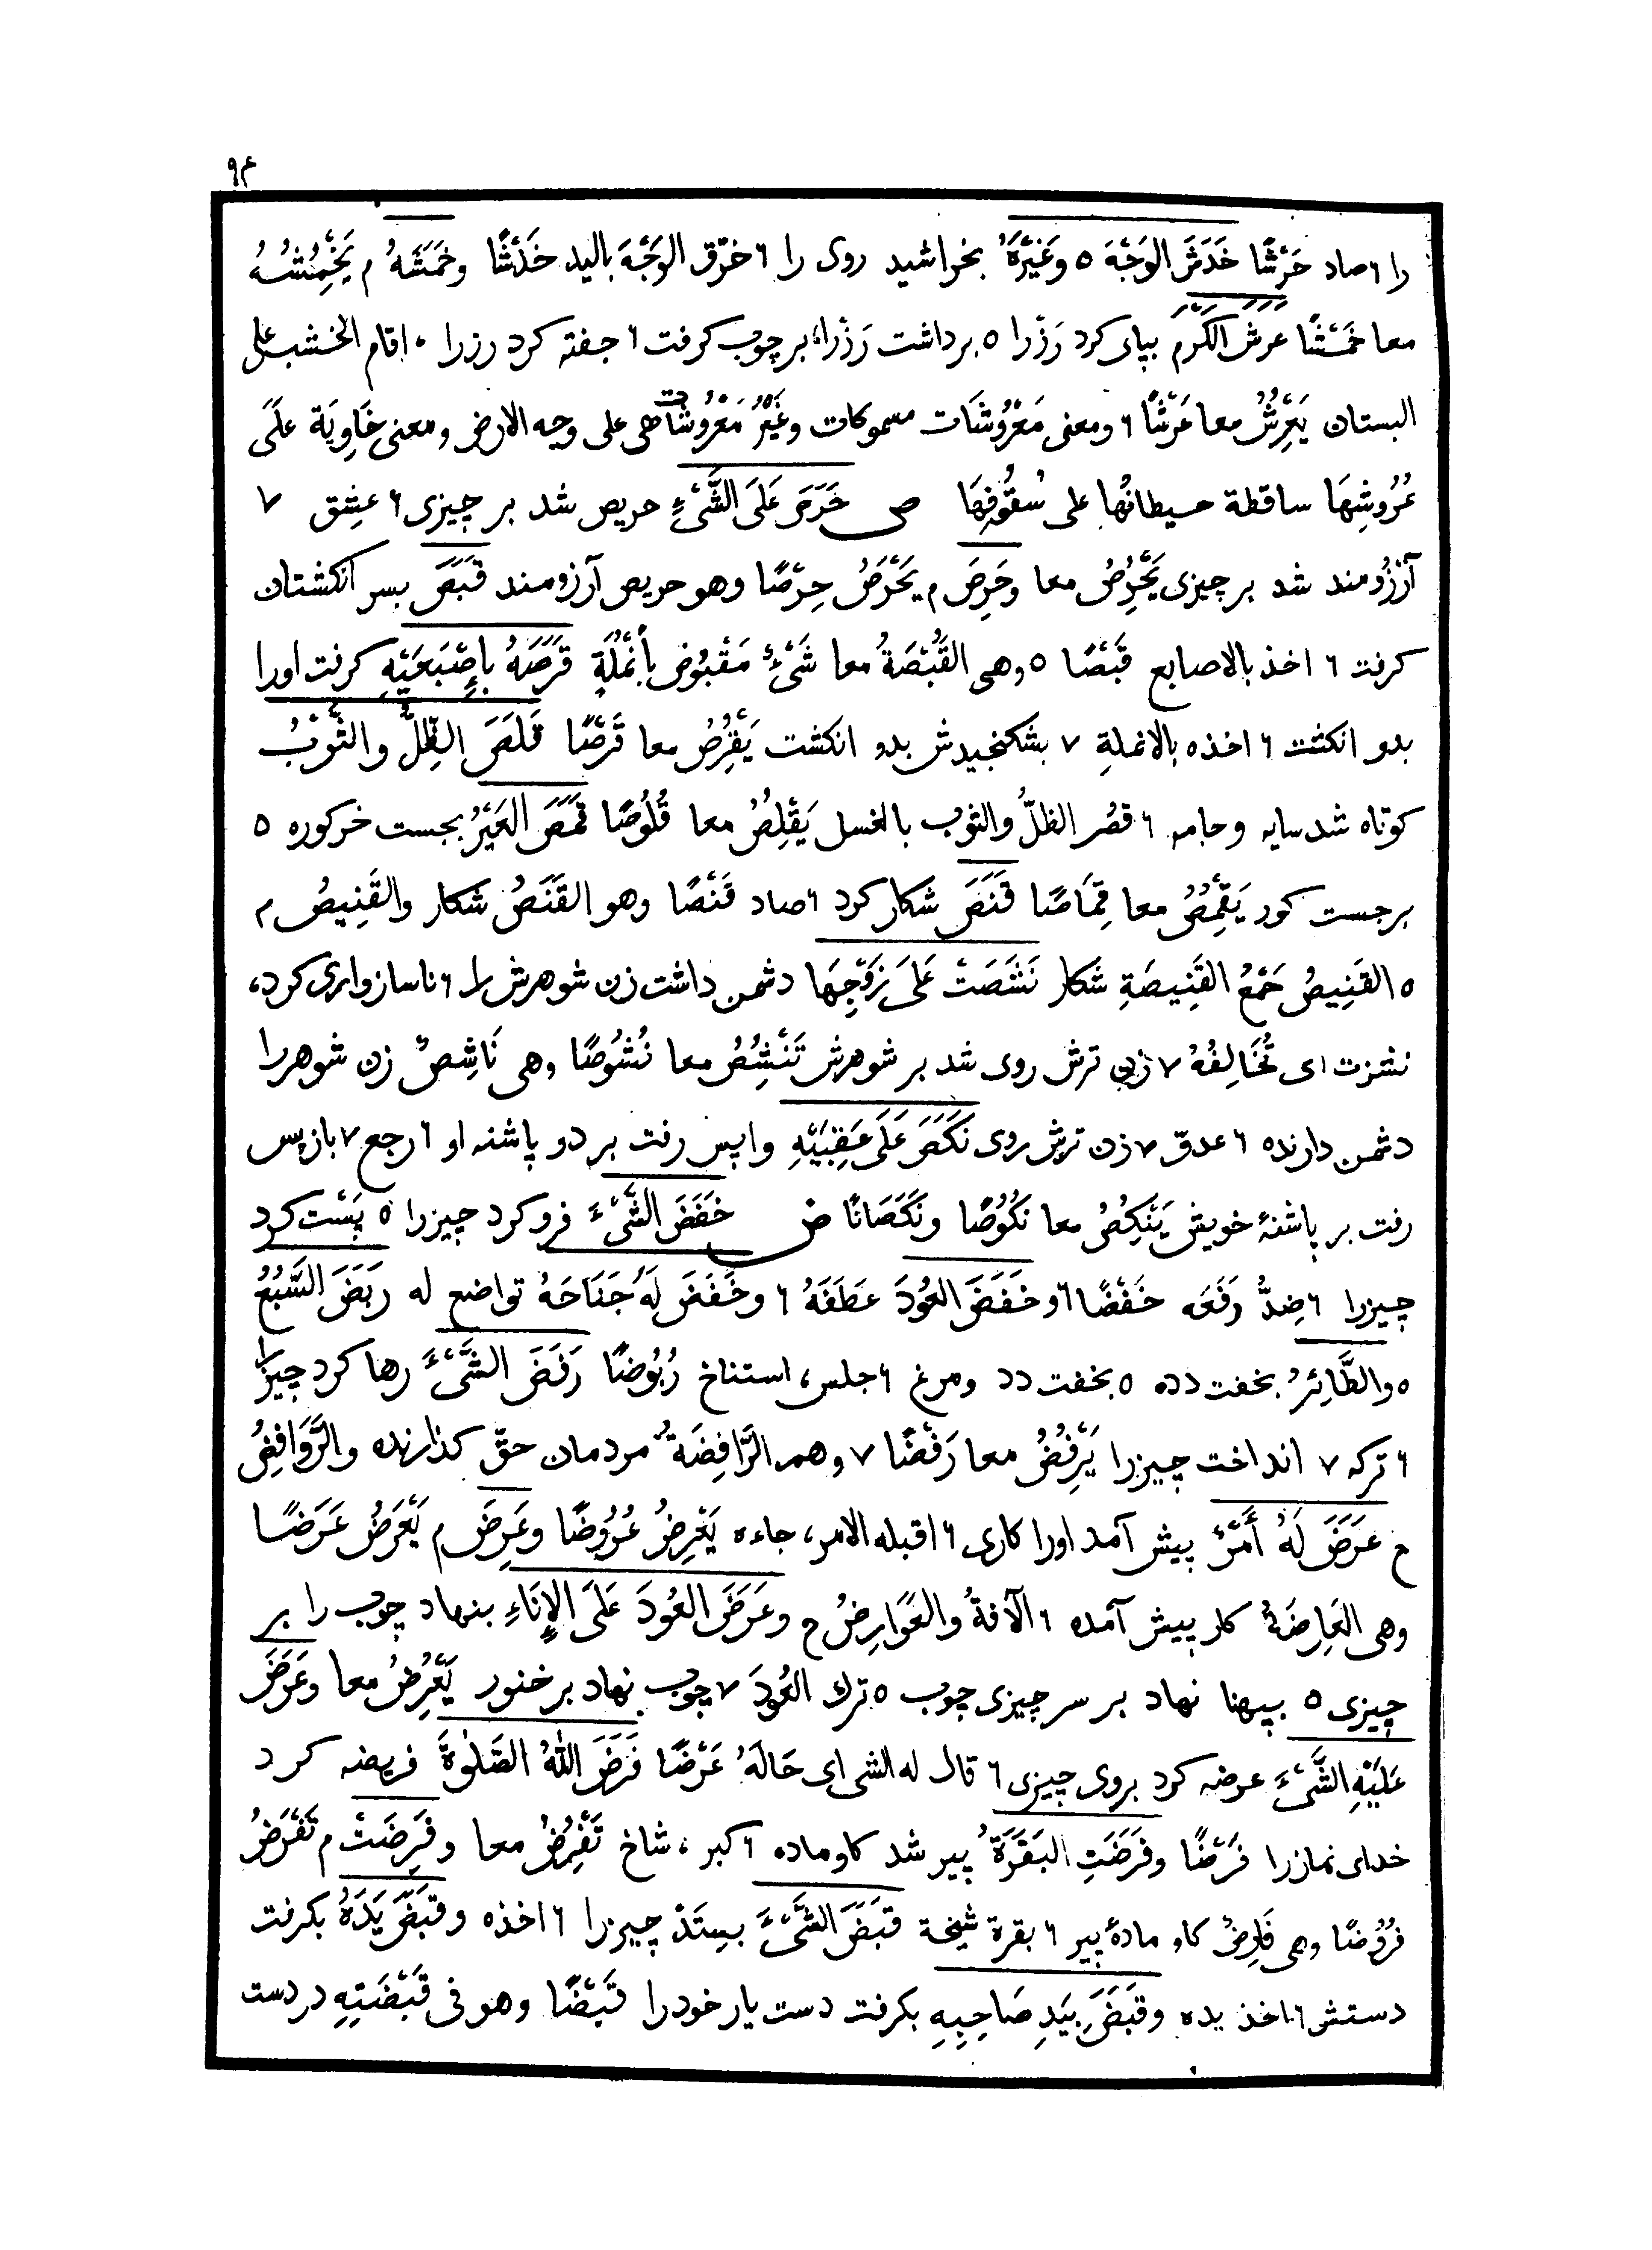 ٩۴
را ٦ صاد حَرْشًا خَدَشَ الوَجْهَ ٥ وَغَيْرَهُ بخراشید روی را ٦ خرّق الوَجْهَ بالید خَدْشًا وخَمَشَهُ م يَخْمِشُهُ
معا خَمْشًا عَرَشَ الكَرْمَ بپای کرد رَزرا ٥ برداشت رَزرا، بر چوب کرفت ٦ جفته کرد رزرا ، اقام الخشب علی
البستان يَعْرِشُ معا عَرْشًا ٦ ومعنی مَعْرُوشَات مسموکات وغَيْرُ مَعْرُوشَات هی علی وجه الارض ومعنی خَاوِيَة عَلَى
عُرُوشِهَا ساقطة حیطانُها علی سُقُوفِهَا ص حَرَصَ عَلَى الشَّيْءِ حریص شد بر چیزی ٦ عشِق ٧
آرزُومند شد بر چیزی يَحْرِصُ معا وحَرِصَ م يَحْرَصُ حِرْصًا وهو حریص آرزومند قَبَصَ بسر انکشتان
کرفت ٦ اخذ بالاصابع قَبْصًا ٥ وهی القَبْصَةُ معا شَيْءٌ مَقْبُوض بأَنْمُلَةٍ قَرَصَهُ بِإِصْبَعَيْهِ کرفت اورا
بدو انکشت ٦ اخذه بالانملةِ ٧ بشکنجیدش بدو انکشت يَقْرِصُ معا قَرْصًا قَلَصَ الظِّلُّ والثَّوْبُ
کوتاه شد سایه و جامه ٦ قصُر الظلُّ والثوب بالغسل يَقْلِصُ معا قُلُوصًا قَمَصَ العَيْرُ بجست خر کوره ٥
برجست کور يَقْمِصُ معا قِمَاصًا قَنَصَ شکار کرد ٦ صاد قَنْصًا وهو القَنَصُ شکار والقَنِيصُ م
٥ القَنِيصُ جَمْعُ القَنِيصَةِ شکار نَشَصَتْ عَلَى زَوْجِهَا دشمن داشت زن شوهرش را ٦ ناسازواری کرد،
نشزت ای تُخَالِفُهُ ٧ زن ترش روی شد بر شوهرش تَنْشِصُ معا نُشُوصًا وهی نَاشِصٌ زن شوهر را
دشمن دارنده ٦ عدوّ ٧ زن ترش روی نَكَصَ عَلَى عَقِبَيْهِ واپس رفت بر دو پاشنه او ٦ رجع ٧ باز پس
رفت بر پاشنهٔ خویش يَنْكِصُ معا نُكُوصًا ونَكَصَانًا ض خَفَضَ الشَّيْءَ فرو کرد چیزرا ٥ پَسْت کرد
چیزرا ٦ ضِدُّ رَفَعَه خَفْضًا ٦ وخَفَضَ العُودَ عَطَفَهُ ٦ وخَفَضَ لَهُ جَنَاحَهُ تواضع له رَبَضَ السَّبُعُ
٥ والطَّائِرُ بخفت دده ٥ بخفت دد ومرغ ٦ جلس، استناخ رُبُوضًا رَفَضَ الشَّيْءَ رها کرد چیزرا
٦ ترکه ٧ انداخت چیزرا يَرْفُضُ معا رَفْضًا ٧ وهم الرَّافِضَةُ مردمان حقّ کذارنده والرَّوَافِضُ
ج عَرَضَ لَهُ أَمْرٌ پیش آمد اورا کاری ٦ اقبله الامر، جاءه يَعْرِضُ عُرُوضًا وعَرِضَ م يَعْرَضُ عَرَضًا
وهی العَارِضَةُ کار پیش آمده ٦ الآفةُ والعَوَارِضُ ج وعَرَضَ العُودَ عَلَى الإِنَاءِ بنهاد چوب را بر
چیزی ٥ بپهنا نهاد بر سر چیزی چوب ٥ ترك العُودَ ٧ چوب نهاد بر خنور يَعْرِضُ معا وعَرَضَ
عَلَيْهِ الشَّيْءَ عرضه کرد بروی چیزی ٦ قال له الشی ای حَالَهُ عَرْضًا فَرَضَ اللهُ الصَّلوٰةَ فریضه کرد
خدای نمازرا فَرْضًا وفَرَضَتِ البَقَرَةُ پیر شد کاو ماده ٦ کبر، شاخ تَفْرِضُ معا وفَرِضَتْ م تَفْرَضُ
فرُوْضًا وهی فَارِضٌ کاو مادهٔ پیر ٦ بقرة شیخة قَبَضَ الشَّيْءَ بستَدْ چیزرا ٦ اخذه وقَبَضَ يَدَهُ بکرفت
دستش ٦ اخذ یده وقَبَضَ بِيَدِ صَاحِبِهِ بکرفت دست یار خود را قَبْضًا وهو فی قَبْضَتِهِ در دست